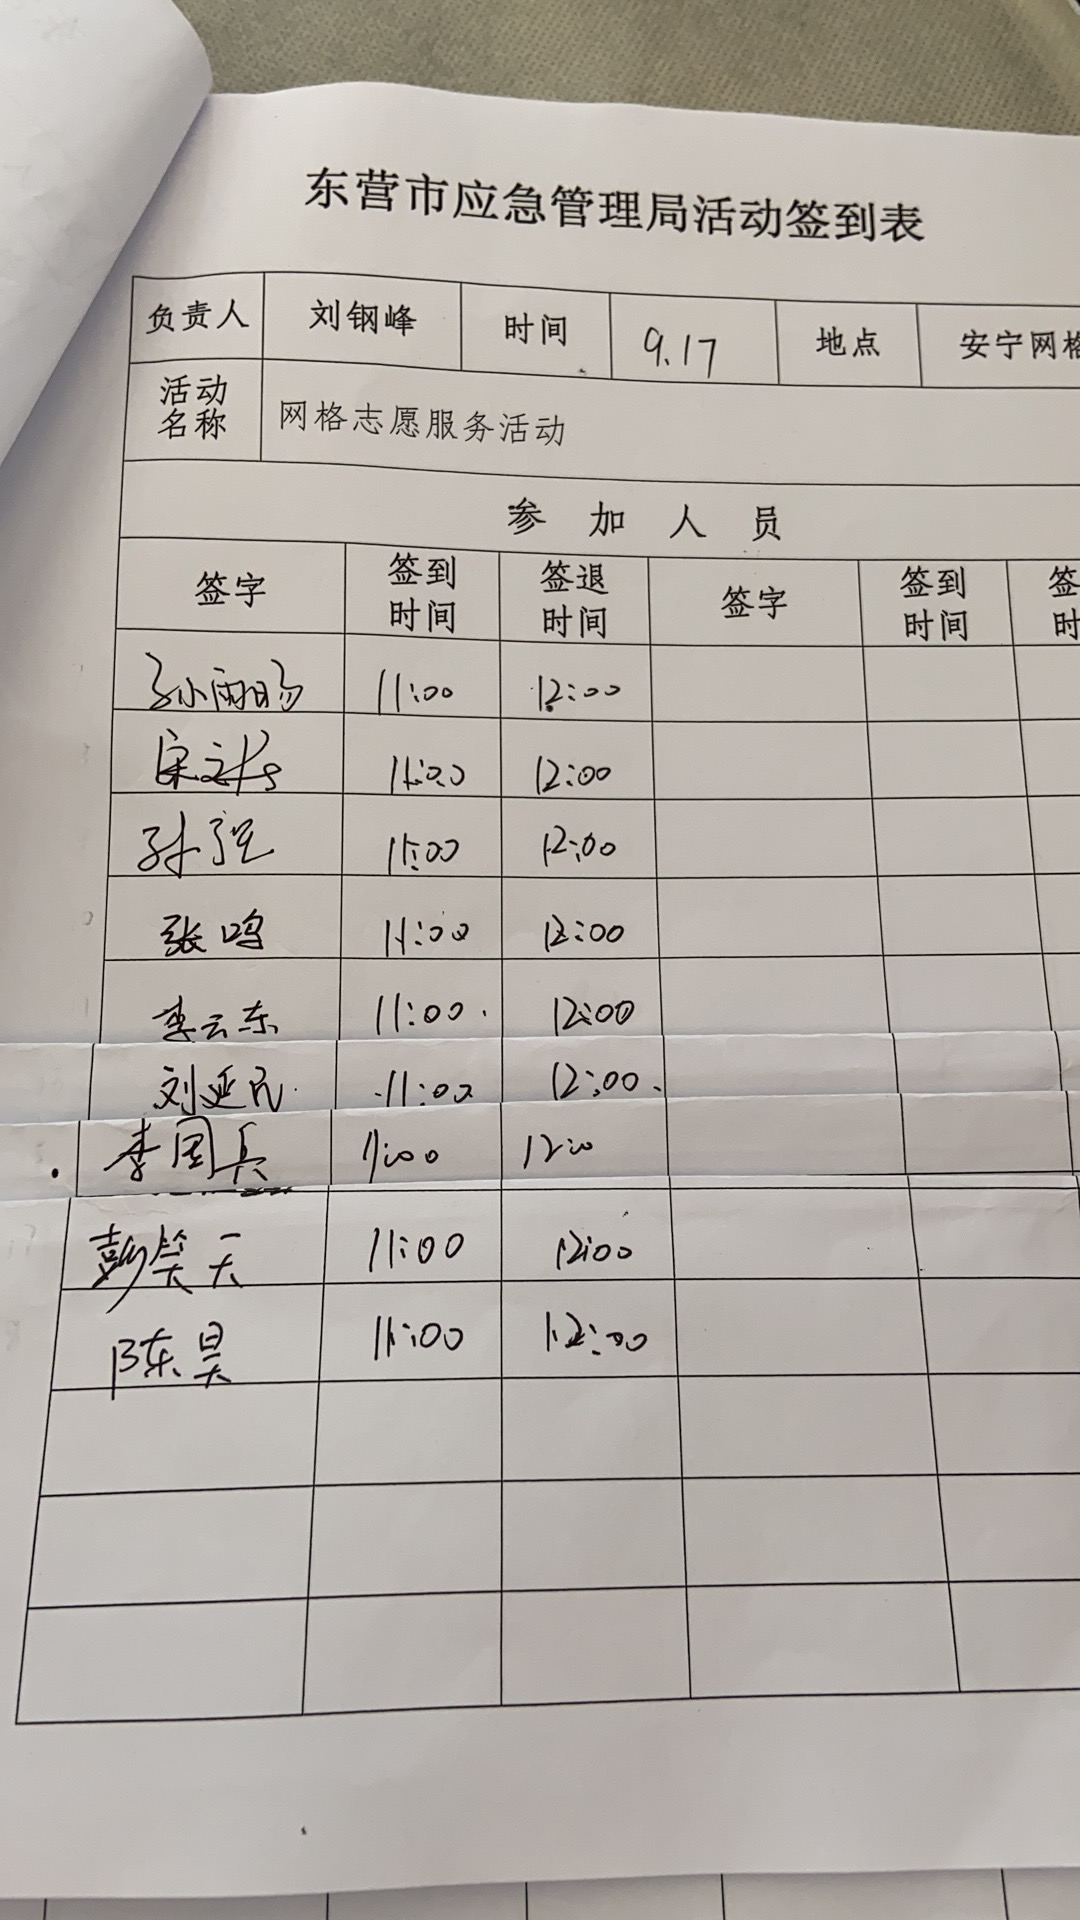 东营市应急管理局活动签到表
负责人 刘钢峰 时间 9.17 地点 安宁网格
活动名称 网格志愿服务活动
参加人员
签字 签到时间 签退时间 签字 签到时间 签 时
孙雨旸 11:00 12:00
宋文 11:00 12:00
孙强 11:00 12:00
张鸣 11:00 12:00
李云东 11:00 12:00
刘延民 11:00 12:00
李国兵 11:00 12:00
彭笑天 11:00 12:00
陈昊 11:00 12:00